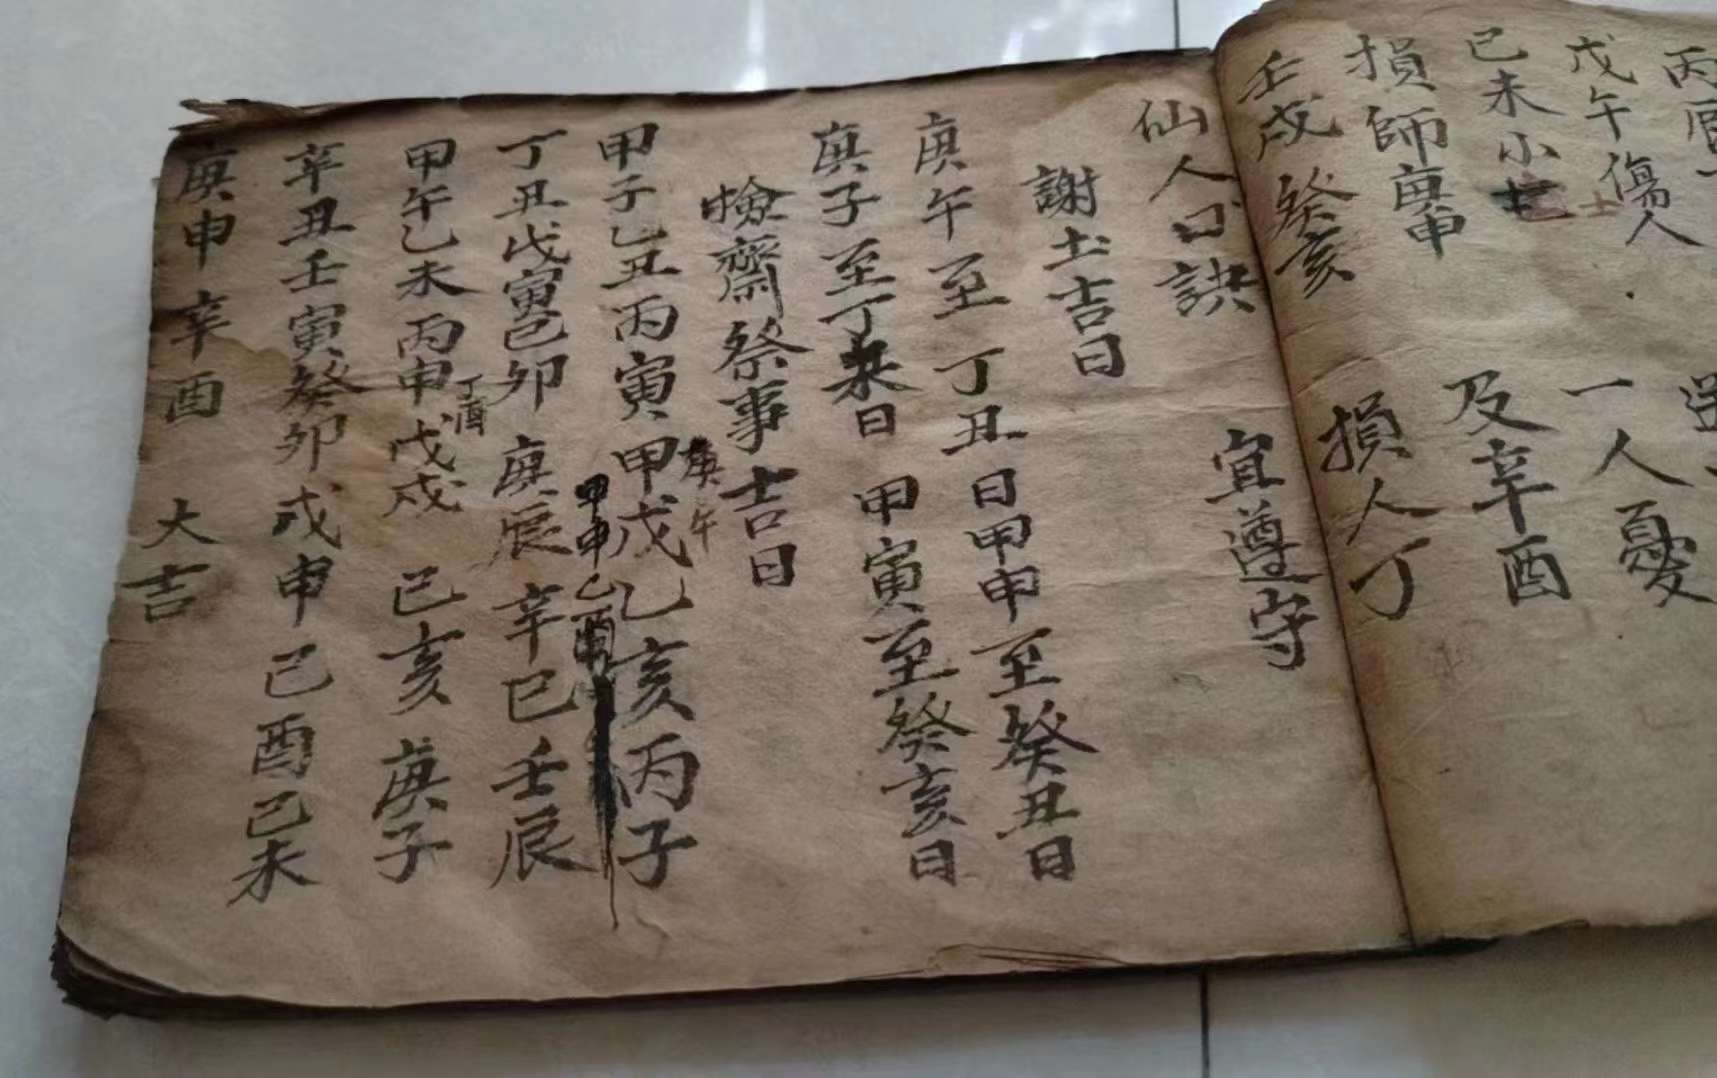 丙
一
戊午傷人
一人憂
己未小
士
及辛酉
損師庚申
損人丁
壬戌 癸亥
仙人口訣 宜遵守
謝土吉日
庚午至丁丑日甲申至癸丑日
庚子至丁未日 甲寅至癸亥日
檢齋祭事吉日
庚午
甲子乙丑丙寅甲戊乙亥丙子
甲申乙酉
丁丑戊寅己卯 庚辰 辛巳 壬辰
丁酉
甲午乙未丙申戊戌 己亥 庚子
辛丑壬寅癸卯戊申己酉己未
庚申辛酉 大吉